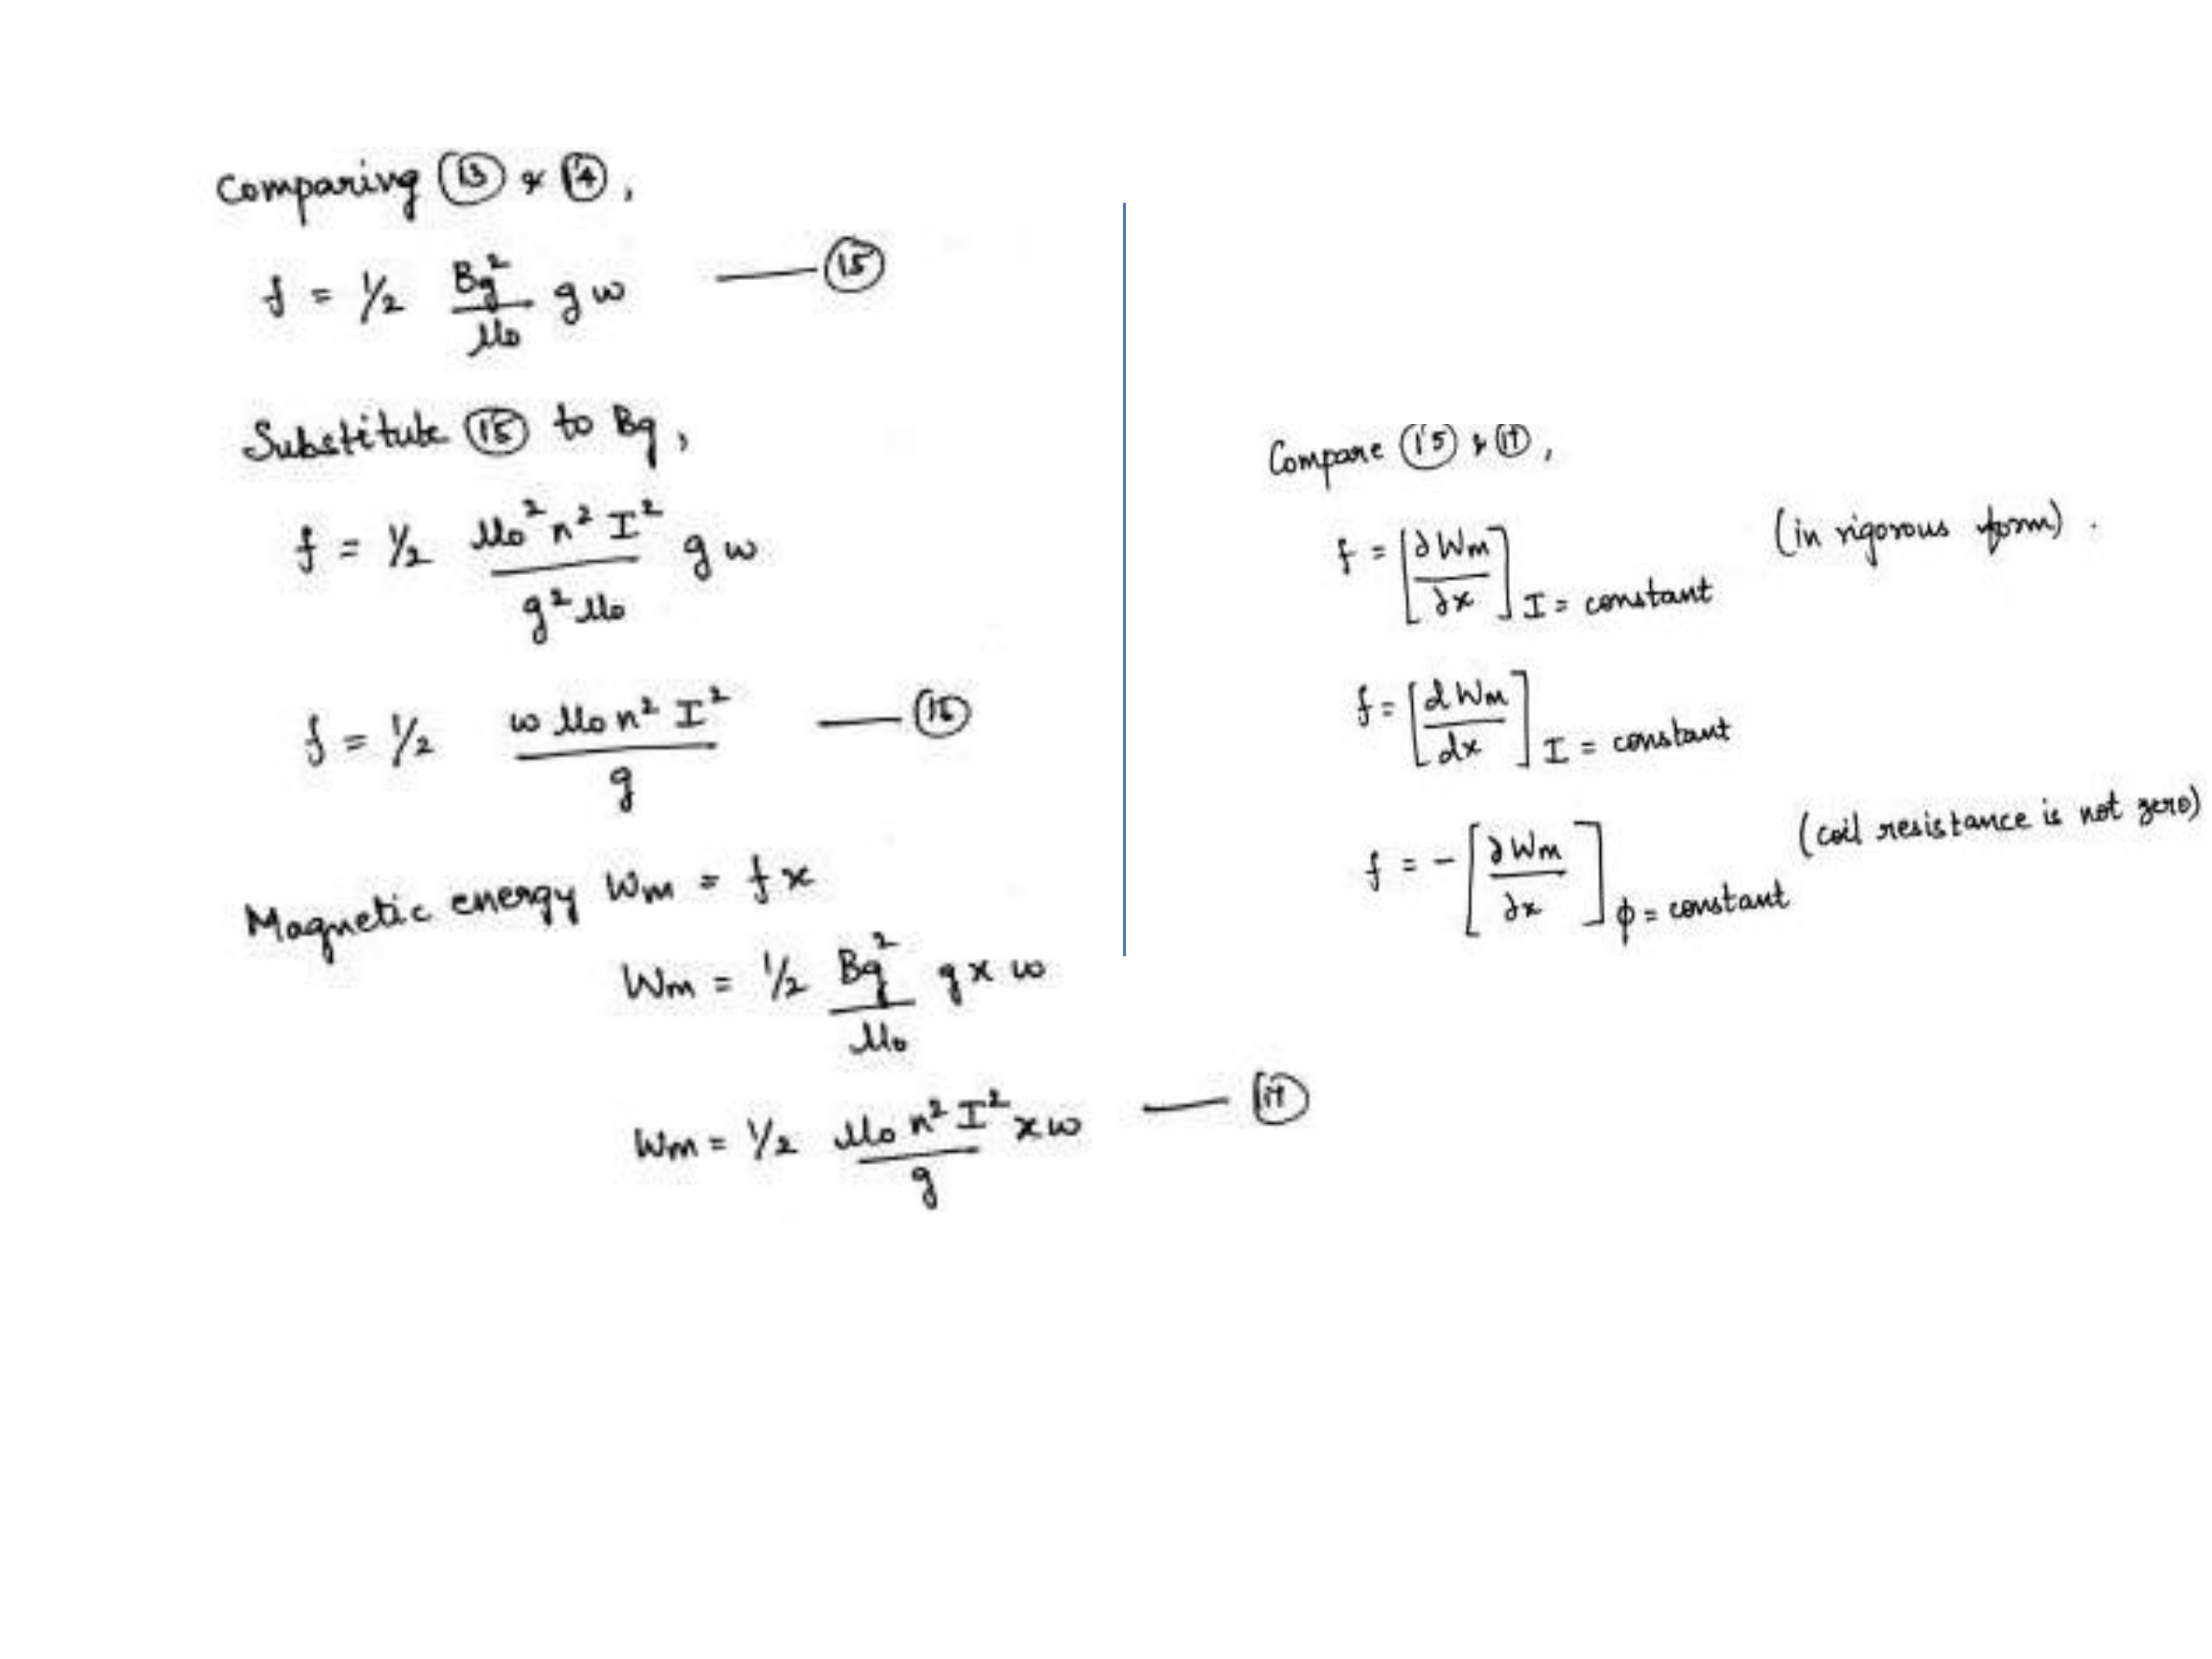 Comparing (13) & (14),
f = 1/2 Bg² / μ0 g w —— (15)
Substitute (15) to Bg,
f = 1/2 μ0² n² I² / g² μ0 g w
f = 1/2 w μ0 n² I² / g —— (16)
Magnetic energy Wm = f x
Wm = 1/2 Bg² / μ0 g x w
Wm = 1/2 μ0 n² I² / g x w —— (17)
Compare (15) & (17),
f = [∂Wm / ∂x] I = constant (in rigorous form).
f = [dWm / dx] I = constant
f = - [∂Wm / ∂x] ϕ = constant (coil resistance is not zero)